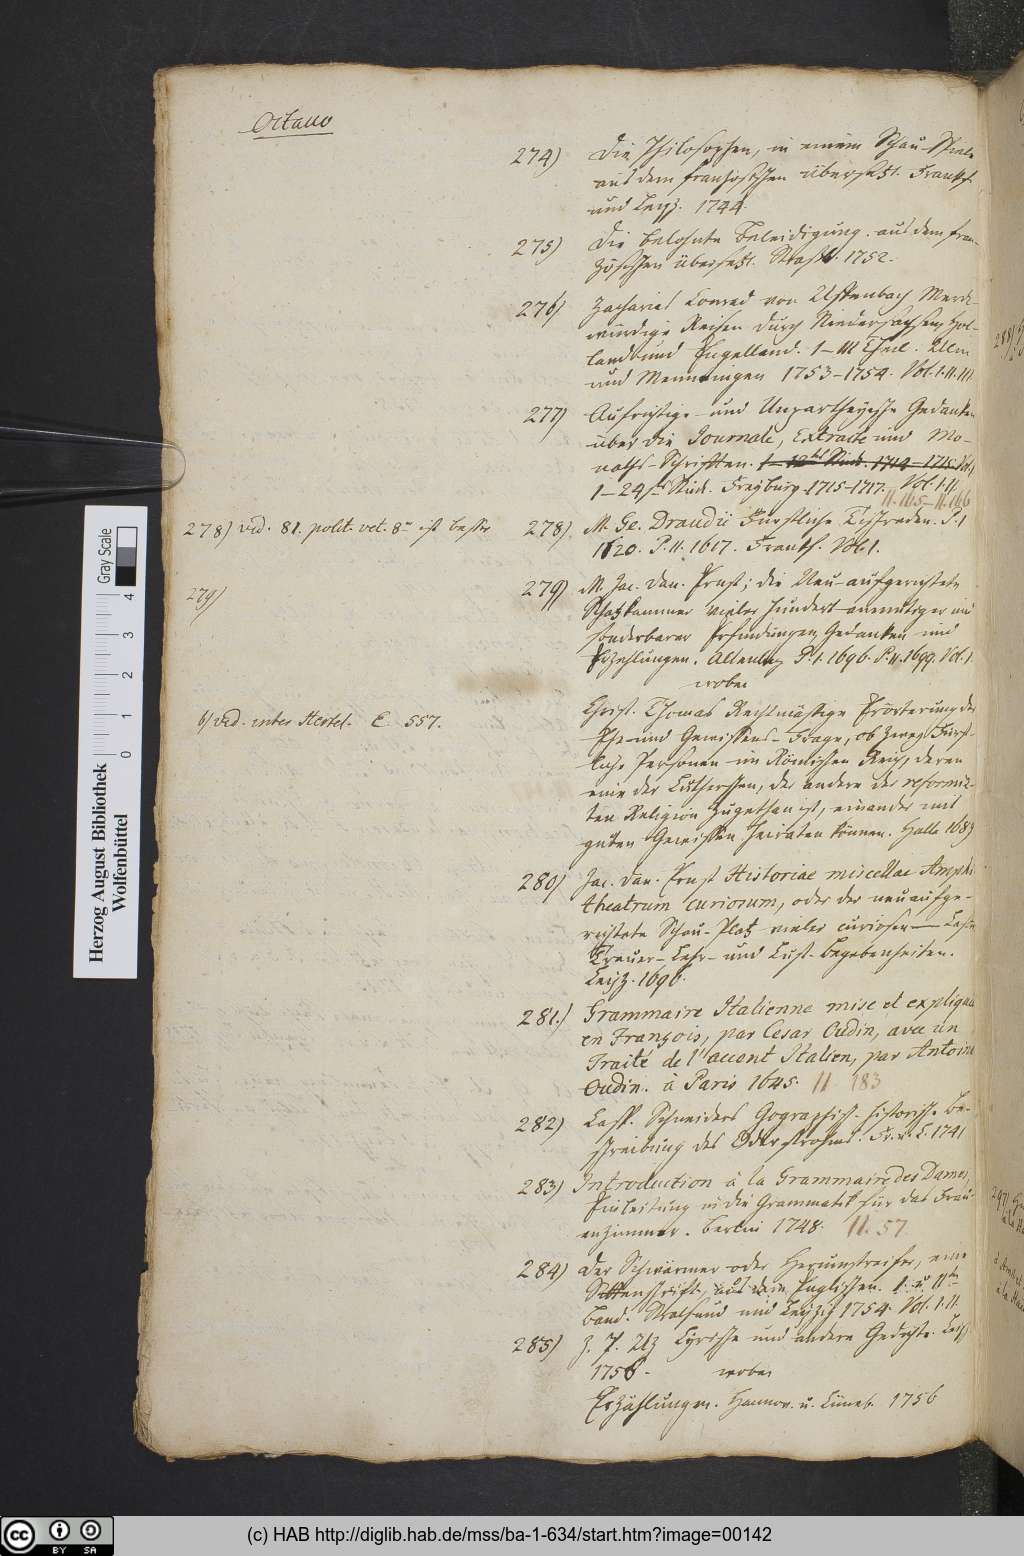 Octavo
274) Die Philosophen, in einem Schau-Spiele
aus dem französischen übersetzt. Franckf.
und Leipz. 1744.
275) Die belohnte Beleidigung. aus dem fran-
zösischen übersetzt. 1752.
276) Zacharias Conrad von Uffenbach Merck-
würdige Reisen durch Niedersachsen, Hol-
land und Engelland. 1–III Theil. Ulm
und Memmingen 1753–1754. Vol. I. II. III.
277) Aufrichtige und Unpartheyische Gedancken
über die Journale, Extracte und Mo-
naths-Schrifften. 1–12tes Stück. 1714–1715. Vol. 1
1–24stes Stück. Freyburg 1715–1717. Vol. I. II.
II. 165–II. 166
278) vid. 81. polit. vet. 8vo ist besser
278) M. Ge. Draudii Fürstliche Tischreden. P. 1
1620. P. II. 1617. Franckf. Vol. 1.
279)
279) M. Jac. Dan. Ernst; die Neu-aufgerichtete
Schatzkammer vieler hundert anmutiger und
sonderbarer Erfindungen, Gedancken und
Erzehlungen. Altenburg P. 1. 1696. P. II. 1699. Vol. 1.
wobei
b) vid. inter Hertel. E. 557.
Christ. Thomas Rechtmässige Erörterung der
Ehe- und Gewissens-Frage, ob zwey Fürst-
liche Personen im Römischen Reich, deren
eine der Lutherischen, die andere der reformir-
ten Religion zugethan ist, einander mit
guten Gewissen heiraten können. Halle 1689
280) Jac. Dan. Ernst Historiae miscellae Amphi
theatrum curiosum, oder der neuaufge-
richtete Schau-Platz vieler curiosen
Trauer- Lehr- und Lust-Begebenheiten.
Leipz. 1696.
281.) Grammaire Italienne mise et expliquée
en François, par Cesar Oudin, avec un
Traité de l'accent Italien, par Antoine
Oudin. à Paris 1645. II. 183
282) Casp. Schneiders Gographisch-historische Be-
schreibung des Oderstrohms. Fr. u. L. 1741
283) Introduction à la Grammaire des Dames,
Einleitung in die Grammatik für das Frau-
enzimmer. Berlin 1748. II. 57
284) Der Schwärmer oder Herumstreifer, eine
Sittenschrift, aus dem Englischen. 1. u. IIter
Band. Stralsund und Leipzig 1754. Vol. I. II.
285) J. P. Uz Lyrische und andere Gedichte. Leipz.
1756. wobei
Erzählungen. Hannov. u. Lüneb. 1756
Herzog August Bibliothek
Wolfenbüttel
Gray Scale
0 1 2 3 4
cc BY SA
(c) HAB http://diglib.hab.de/mss/ba-1-634/start.htm?image=00142